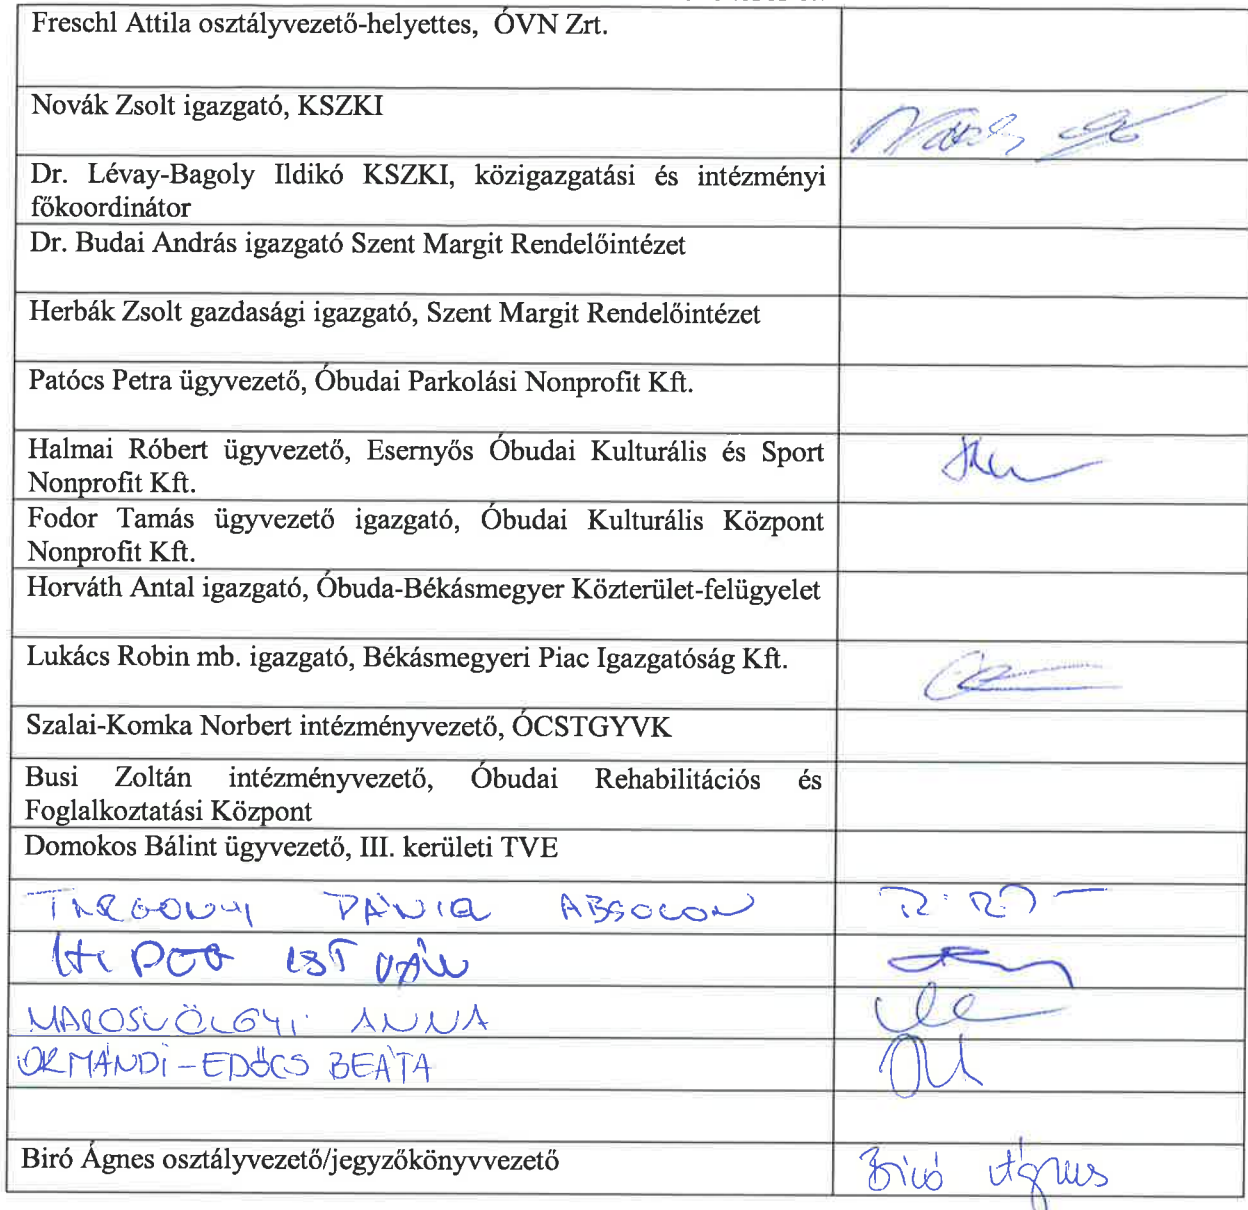 Freschl Attila osztályvezető-helyettes, ÓVN Zrt.
Novák Zsolt igazgató, KSZKI
Dr. Lévay-Bagoly Ildikó KSZKI, közigazgatási és intézményi
főkoordinátor
Dr. Budai András igazgató Szent Margit Rendelőintézet
Herbák Zsolt gazdasági igazgató, Szent Margit Rendelőintézet
Patócs Petra ügyvezető, Óbudai Parkolási Nonprofit Kft.
Halmai Róbert ügyvezető, Esernyős Óbudai Kulturális és Sport
Nonprofit Kft.
Fodor Tamás ügyvezető igazgató, Óbudai Kulturális Központ
Nonprofit Kft.
Horváth Antal igazgató, Óbuda-Békásmegyer Közterület-felügyelet
Lukács Robin mb. igazgató, Békásmegyeri Piac Igazgatóság Kft.
Szalai-Komka Norbert intézményvezető, ÓCSTGYVK
Busi Zoltán intézményvezető, Óbudai Rehabilitációs és
Foglalkoztatási Központ
Domokos Bálint ügyvezető, III. kerületi TVE
DÁNIEL ABSOLON
ISTVÁN
MAROSVÖLGYI ANNA
ORMÁNDI-EDŐCS BEÁTA
Biró Ágnes osztályvezető/jegyzőkönyvvezető Biró Ágnes